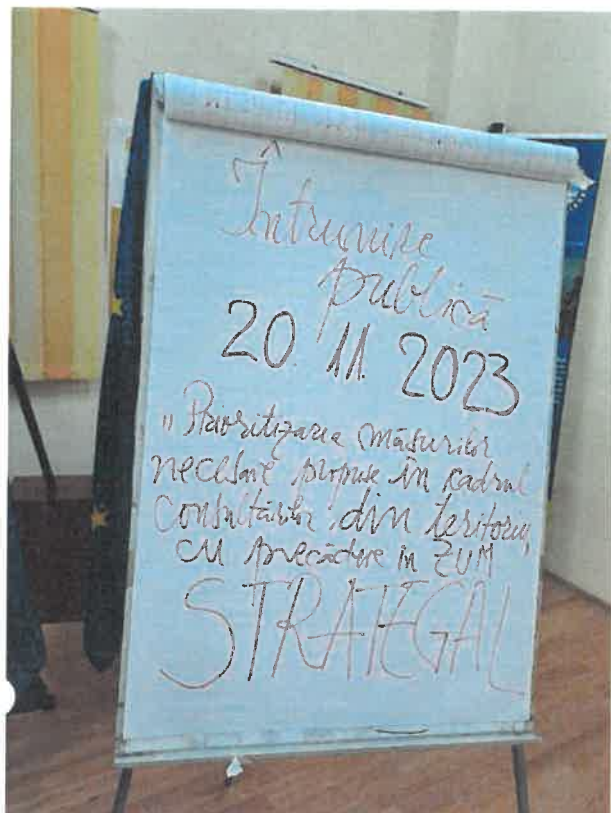 Întrunire
publică
20. 11. 2023
„Prioritizarea măsurilor
necesare propuse în cadrul
consultărilor din teritoriu,
cu precădere în ZUM
STRATEGAL